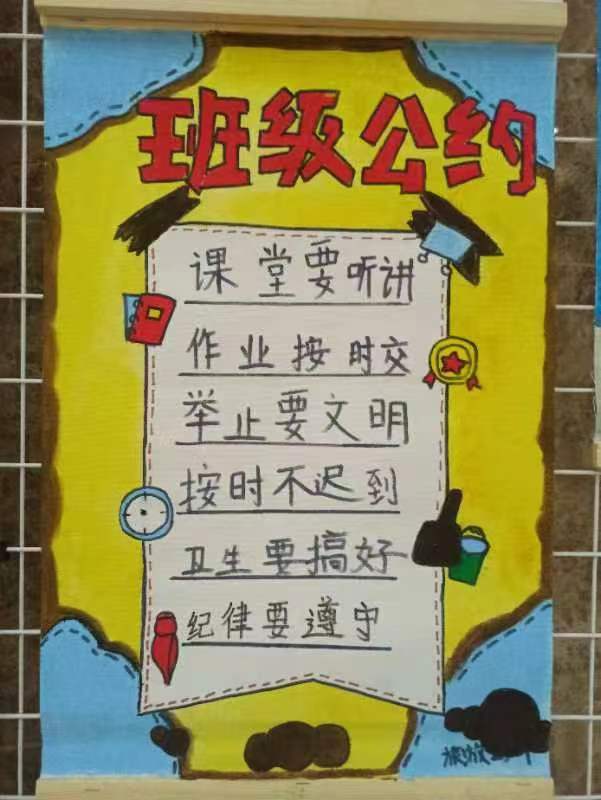 班级公约
课堂要听讲
作业按时交
举止要文明
按时不迟到
卫生要搞好
纪律要遵守